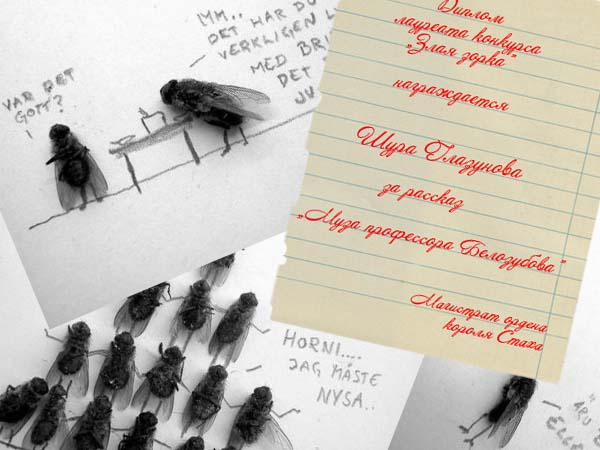 VAR DET
GOTT?
MM..
DET HAR DU
VERKLIGEN
MED
DET
Диплом
лауреата конкурса
"Злая зорка"
награждается
Шура Глазунова
за рассказ
"Муза профессора Белозубова"
Магистрат ордена
короля Стаха
HORNI....
JAG MÅSTE
NYSA..